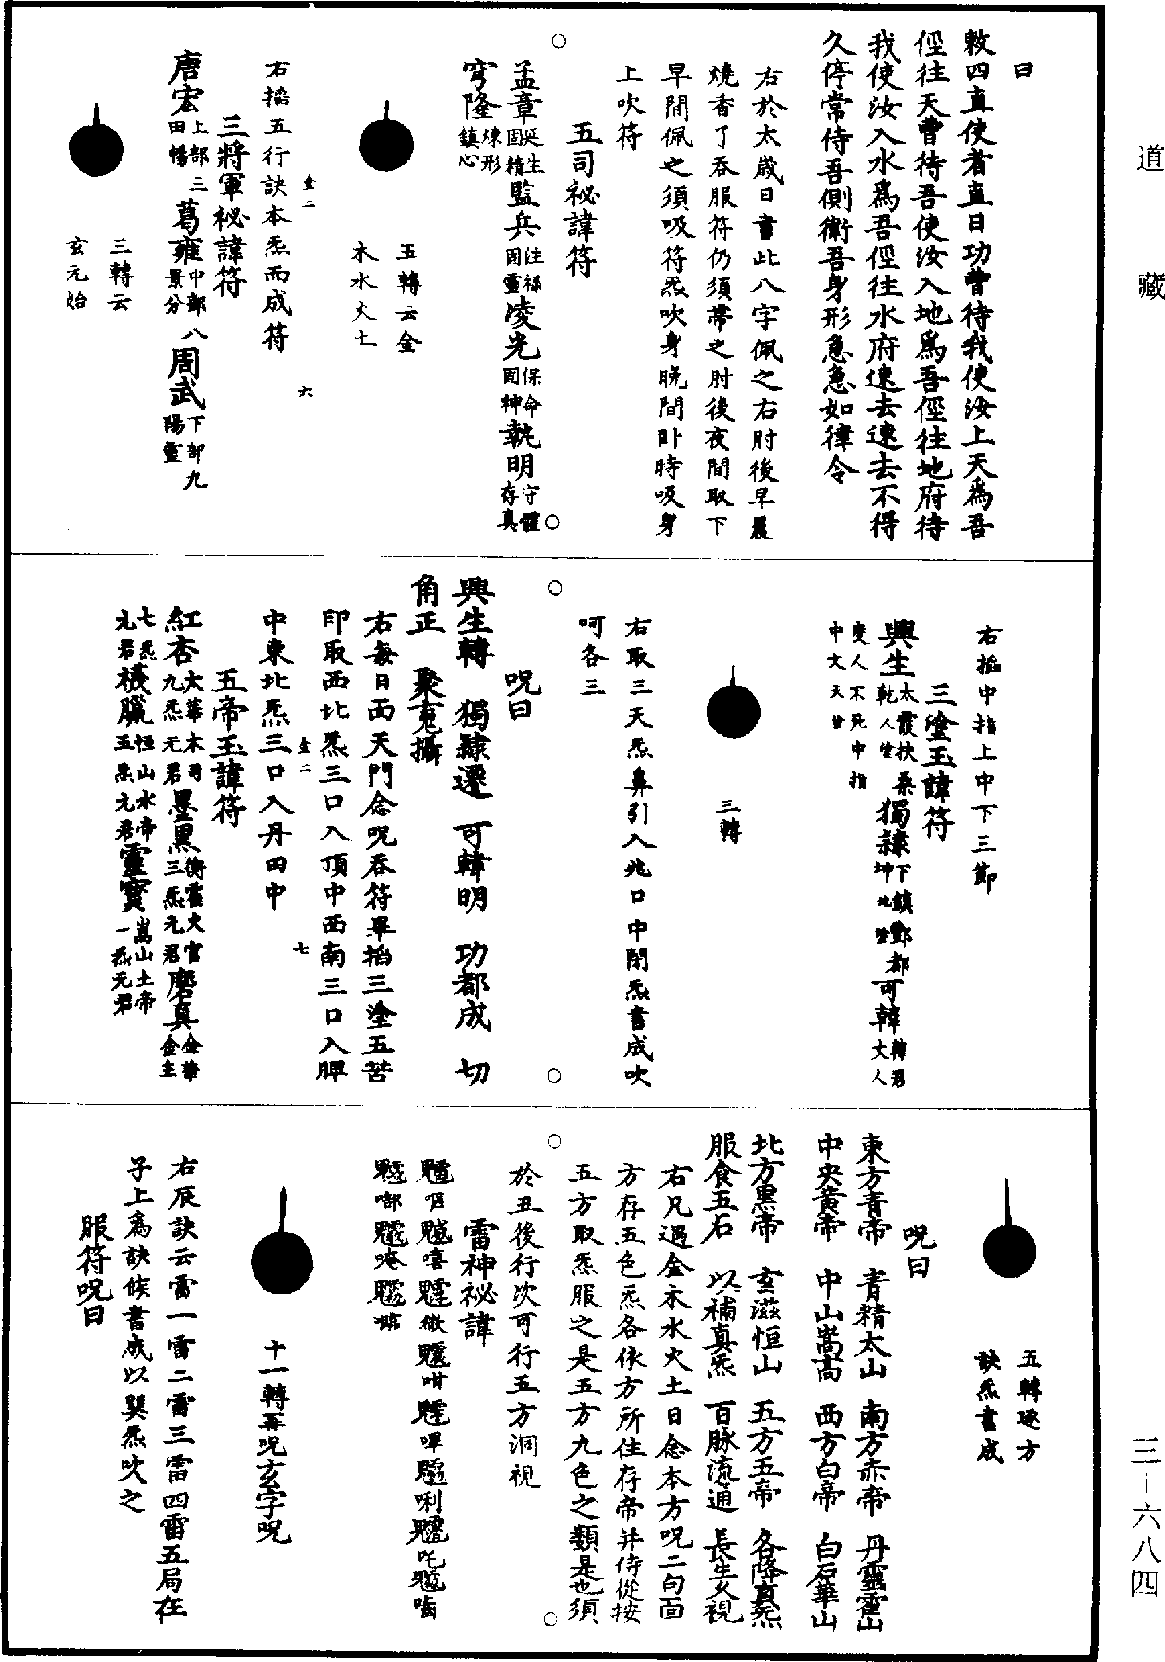 道藏
曰
敕四直使者直日功曹待我使汝上天爲吾
徑往天曹待吾使汝入地爲吾徑往地府待
我使汝入水爲吾徑往水府速去速去不得
久停常侍吾側衛吾身形急急如律令
右於太歲日書此八字佩之右肘後早晨
燒香了吞服符仍須帶之肘後夜間取下
早間佩之須吸符炁吹身晩間卧時吸身
上吹符
五司祕諱符
孟章延生固精監兵注祿固靈凌光保命固神執明守體存真
穹隆煉形鎮心
五轉云金
木水火土
右掐五行訣本炁而成符
三將軍祕諱符
唐宏上部三田暢葛雍中部八景分周武下部九陽靈
三轉云
玄元始
右掐中指上中下三節
三塗玉諱符
興生太霞扶桑乾人生獨隷下鎮酆都可韓韓君丈人
變人不死中指
中文天甘
三轉
右取三天炁鼻引入兆口中閉炁書成吹
呵各三
呪曰
興生轉 獨隷遷 可韓明 功都成 切
角正 聚鬼攝
右每日面天門念呪吞符畢掐三塗五苦
印取西北炁三口入頂中西南三口入脾
中東北炁三口入丹田中
五帝玉諱符
紅杏太華木司九炁元君墨黑衡霍火官三炁元君磨真金華金主
七炁元君穢臘恒山水帝五炁元君靈寳嵩山土帝一炁元君
五轉逐方
訣炁書成
呪曰
東方青帝 青精太山 南方赤帝 丹靈霍山
中央黄帝 中山嵩高 西方白帝 白石華山
北方黒帝 玄滋恒山 五方五帝 各降真炁
服食五石 以補真炁 百脉流通 長生久視
右凡遇金木水火土日念本方呪二句面
方存五色炁各依方所住存帝并侍從按
五方取炁服之是五方九色之類是也須
於丑後行次可行五方洞視
雷神祕諱
十一轉再呪玄字呪
右辰訣云雷一雷二雷三雷四雷五局在
子上爲訣候書成以巽炁吹之
服符呪曰
三－六八四